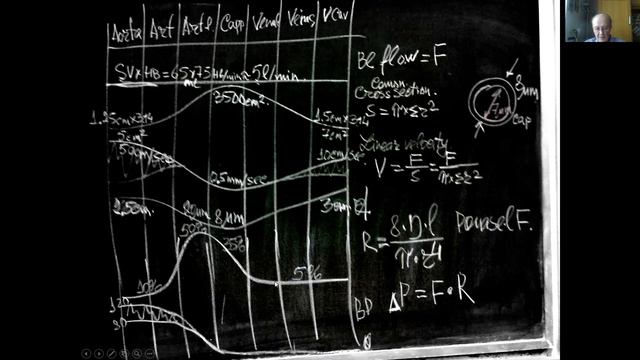 Aorta Art Art l Capp Venul Venus VCav
SV x HB = 65 x 75 Hb/min = 5l/min.
ml
3500cm².
1.25cm x 3.14
5cm²
1.5cm x 3.14
7cm²
500mm/sec
0.5mm/sec
10cm/sec
2.5cm.
20µm
8µm
3cm
50%
25%
10%
5%
120
80
Bl flow = F
Common
Cross section.
S = π x Σr²
Linear velocity
V = F/S = F/π x Σr²
R = 8.η.l/π.r⁴
BP ΔP = F • R
8µm
cap